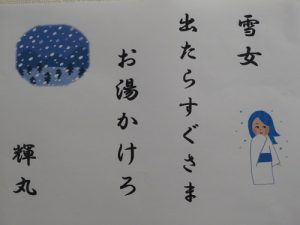 雪女
出たらすぐさま
お湯かけろ
輝丸